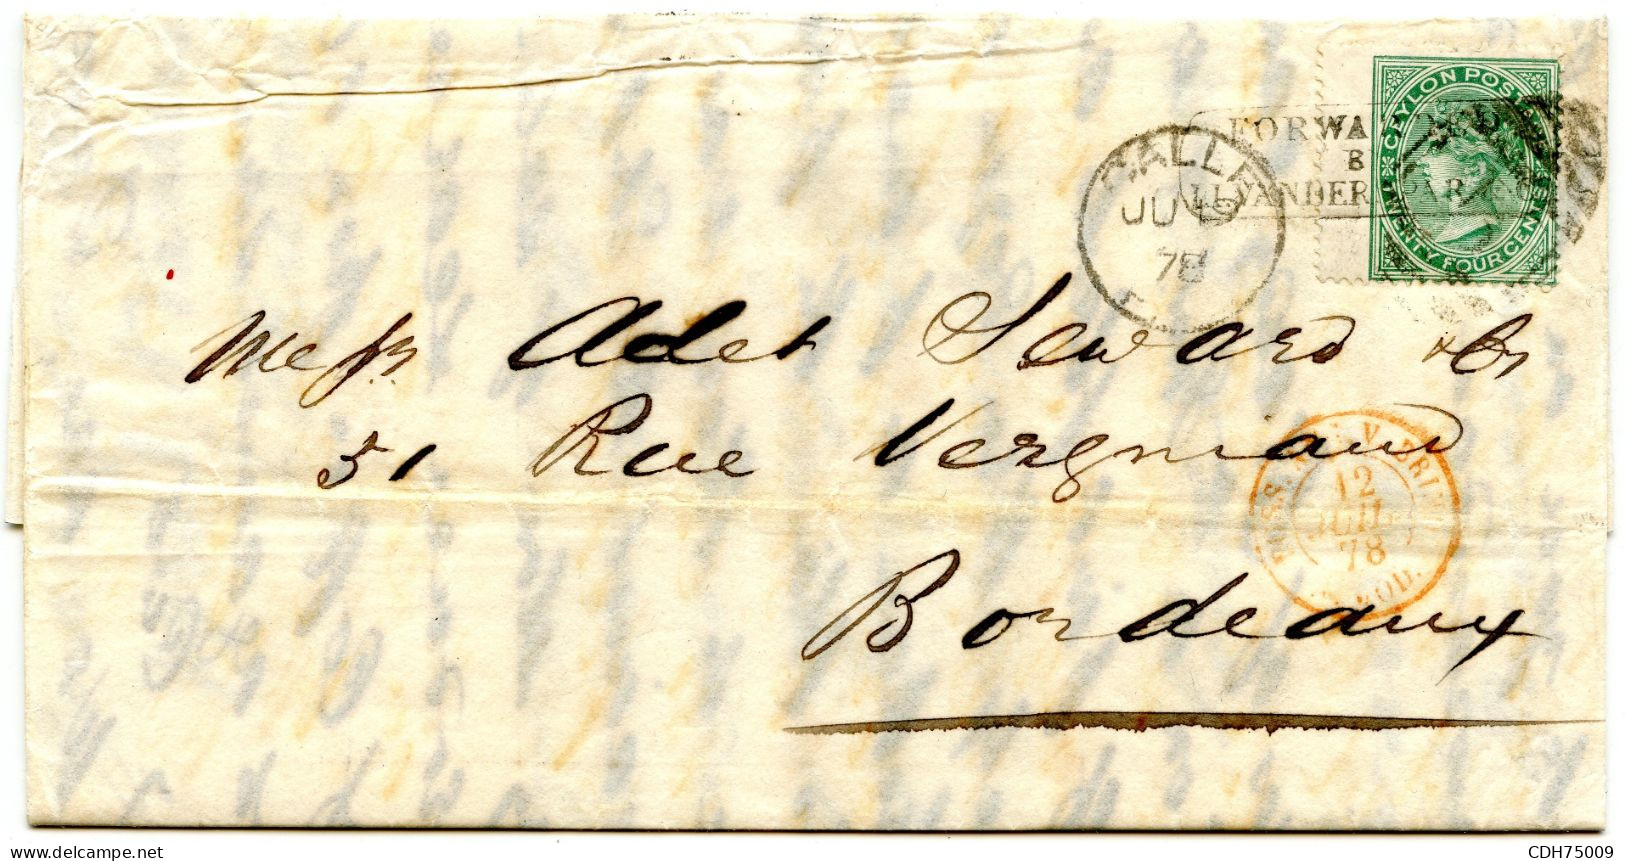 CEYLON POSTAGE
TWENTY FOUR CENTS
FORWARDED
B
VANDER
GALLE
JU
78
Messrs Adet Seward & Co
51 Rue Vergniaud
Bordeaux
12
JUIL
78
delcampe.net
CDH75009